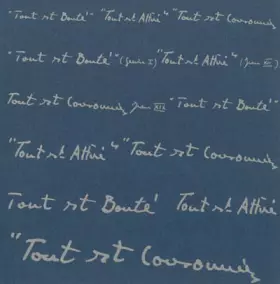 "Tout est Bonté" "Tout est Attiré" "Tout est Couronné
"Tout est Bonté" (Guerre I) "Tout est Attiré" (Guerre II)
Tout est Couronné Guerre XIX "Tout est Bonté"
"Tout est Attiré" "Tout est Couronné
Tout est Bonté Tout est Attiré
"Tout est Couronné